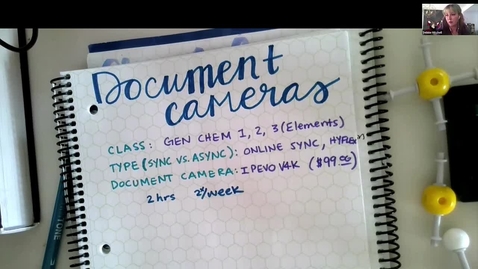 Document
cameras
CLASS: GEN CHEM 1, 2, 3 (Elements)
TYPE (SYNC VS. ASYNC): ONLINE SYNC, HYFLEX
DOCUMENT CAMERA: IPEVO V4K ($99.00)
2 hrs 2x/week